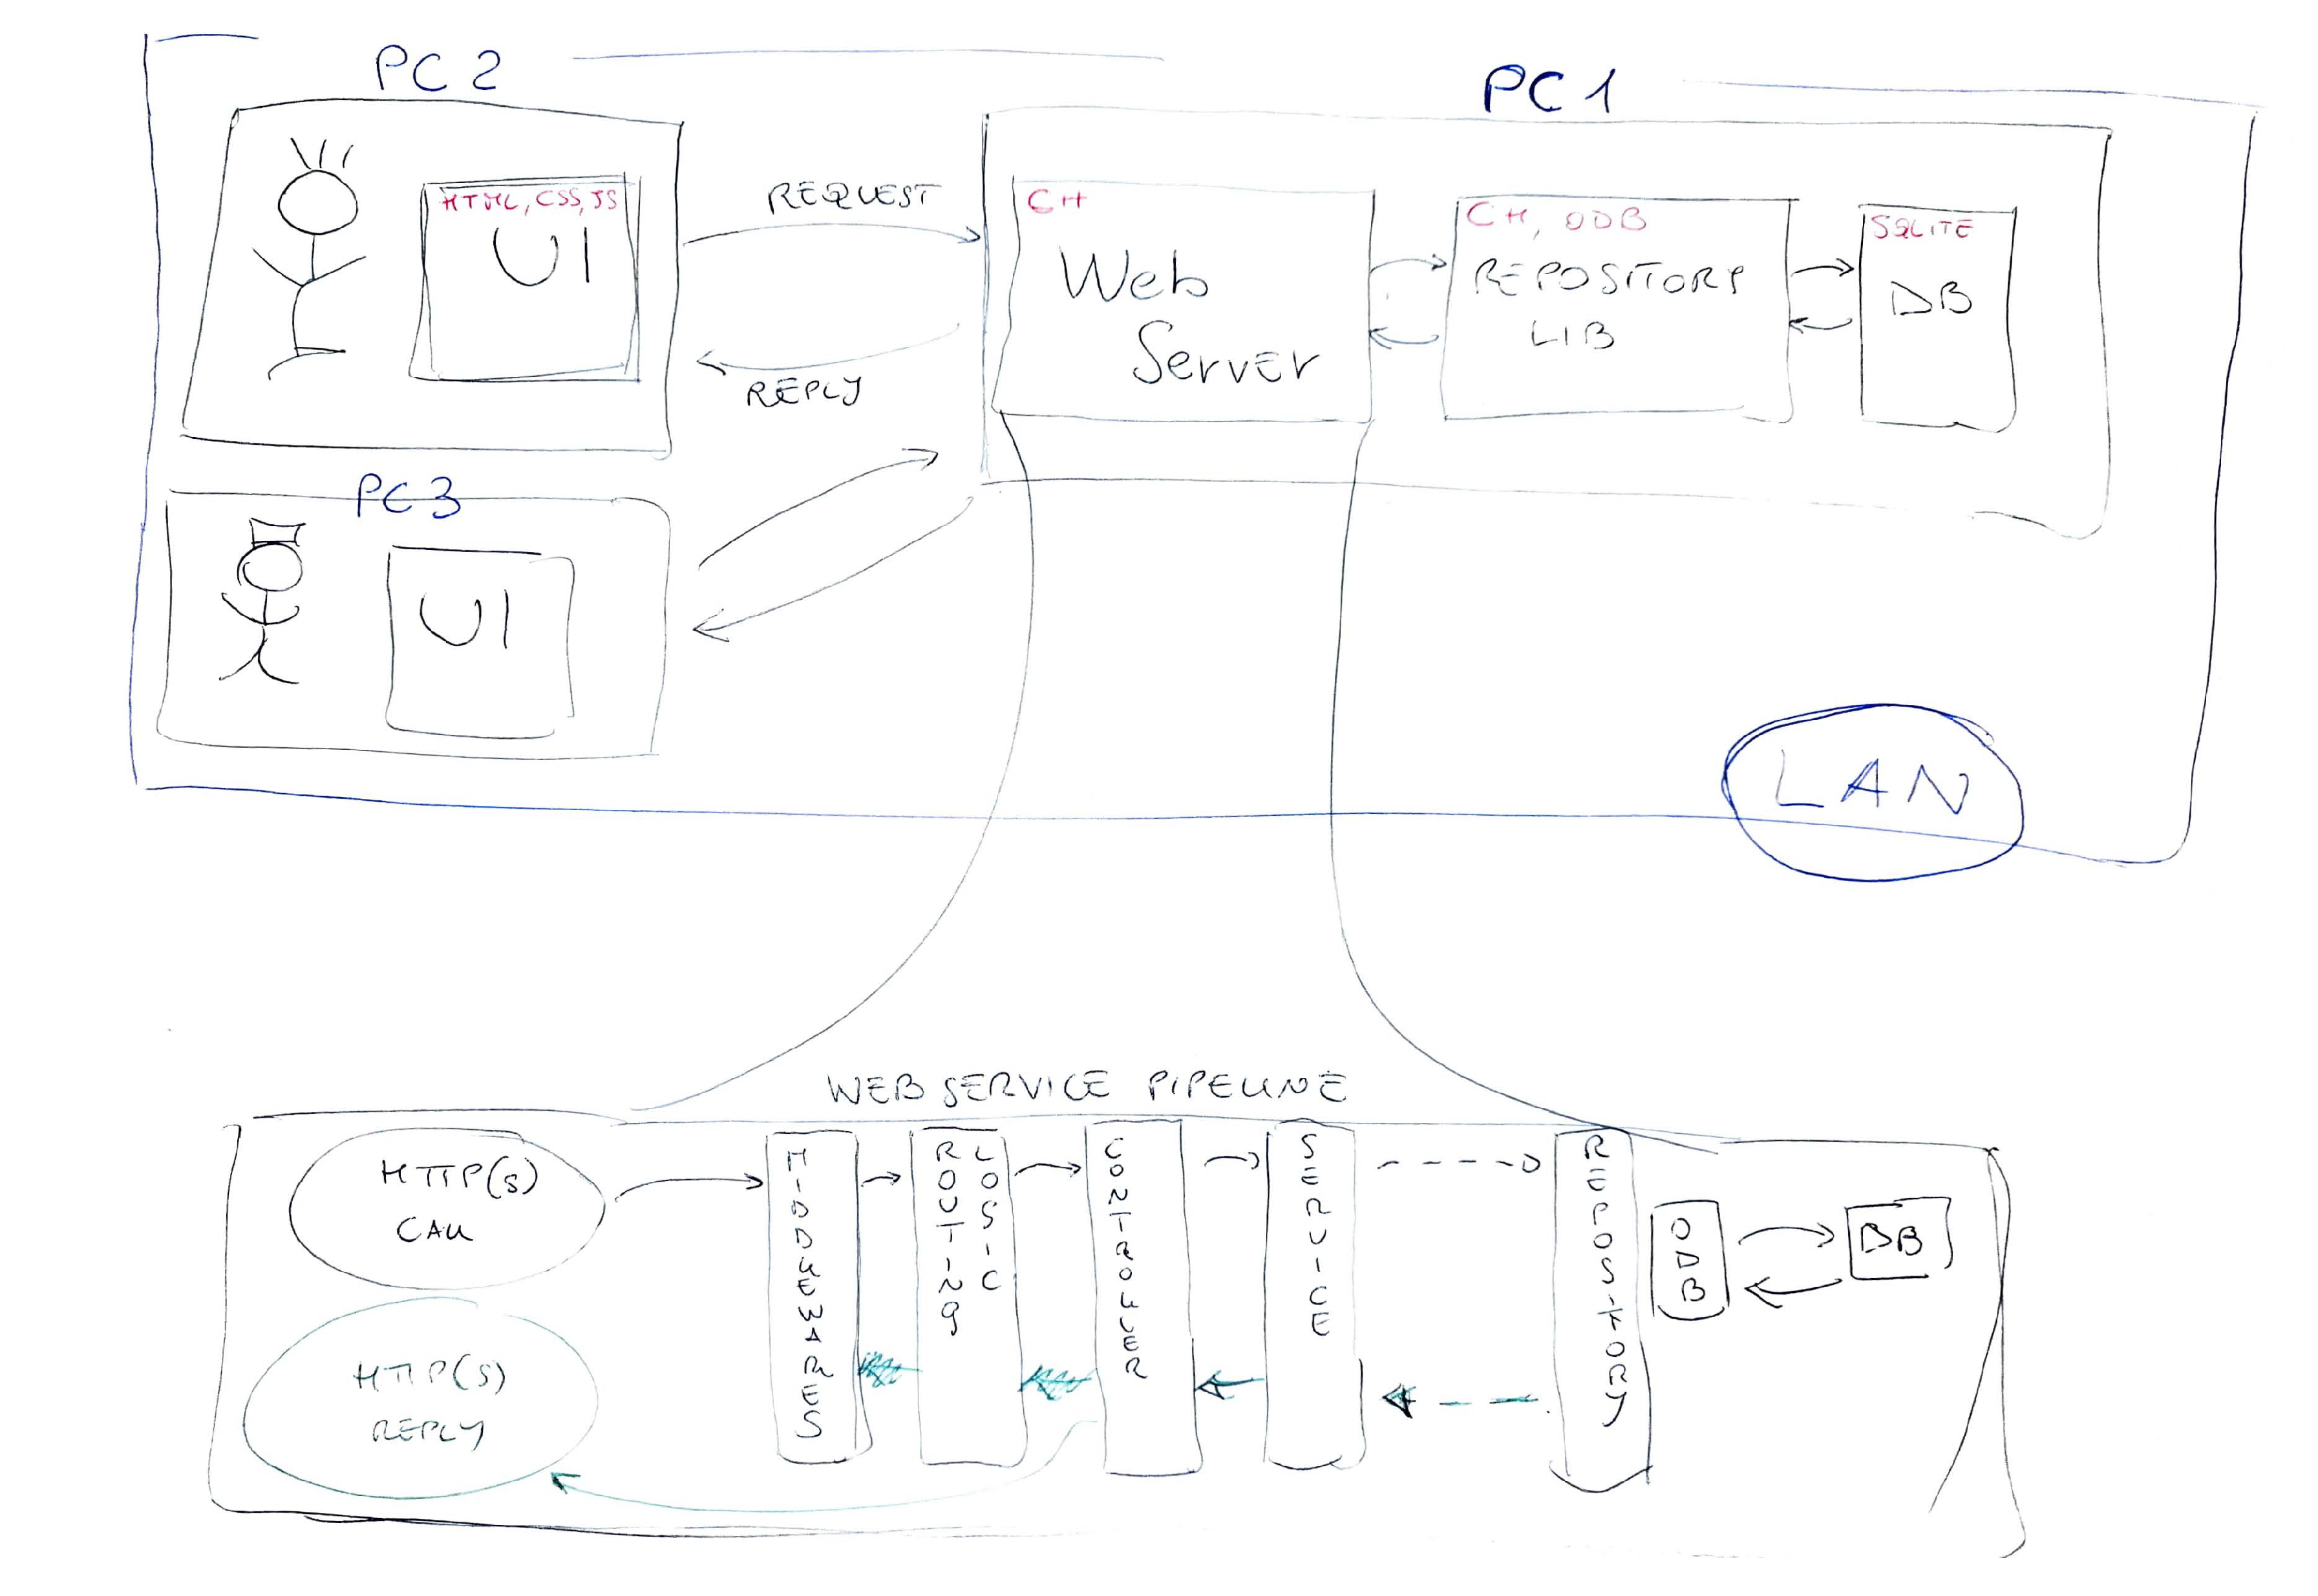 PC 2
PC 1
HTML, CSS, JS
UI
REQUEST
REPLY
C++
Web
Server
C++, ODB
REPOSITORY
LIB
SQLITE
DB
PC 3
UI
LAN
WEB SERVICE PIPELINE
HTTP(S)
CALL
HTTP(S)
REPLY
MIDDLEWARES
ROUTING
LOGIC
CONTROLLER
SERVICE
REPOSITORY
ODB
DB